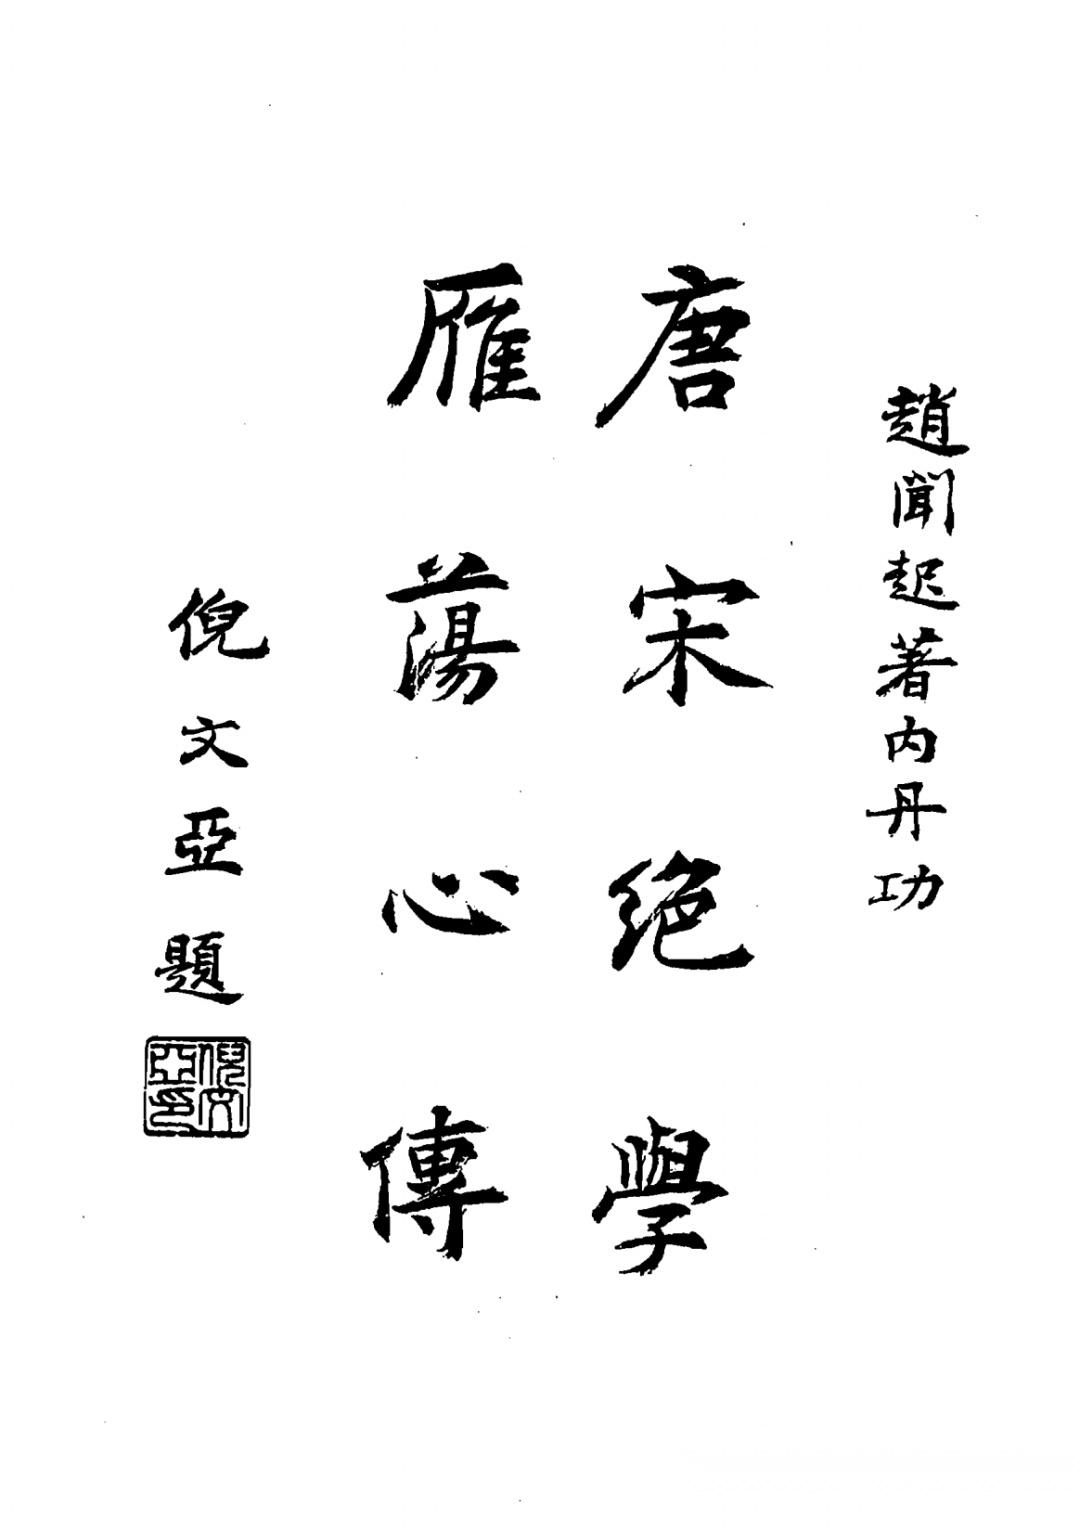 趙聞起著内丹功
唐宋绝學
雁蕩心傳
倪文亞題
倪文亞印